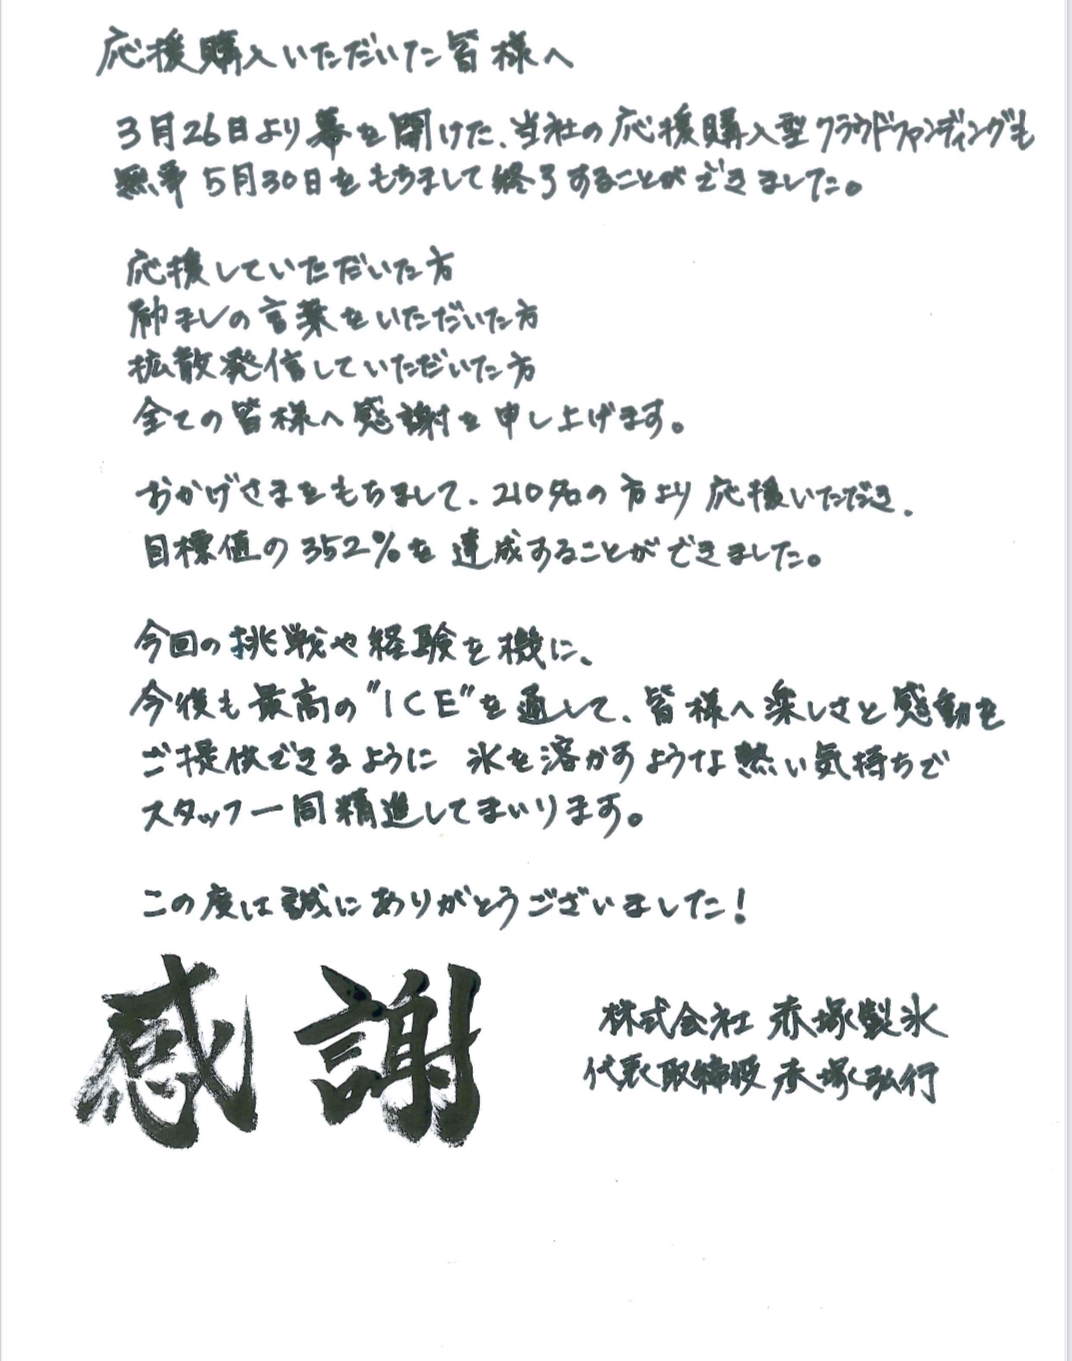 応援購入いただいた皆様へ
3月26日より幕を開けた、当社の応援購入型クラウドファンディングも
無事 5月30日をもちまして終了することができました。
応援していただいた方
励ましの言葉をいただいた方
拡散発信していただいた方
全ての皆様へ感謝を申し上げます。
おかげさまをもちまして、210名の方より応援いただき、
目標値の352%を達成することができました。
今回の挑戦や経験を機に、
今後も最高の"ICE"を通して、皆様へ楽しさと感動を
ご提供できるように 氷を溶かすような熱い気持ちで
スタッフ一同精進してまいります。
この度は誠にありがとうございました!
感謝
株式会社 赤塚製氷
代表取締役 赤塚弘行